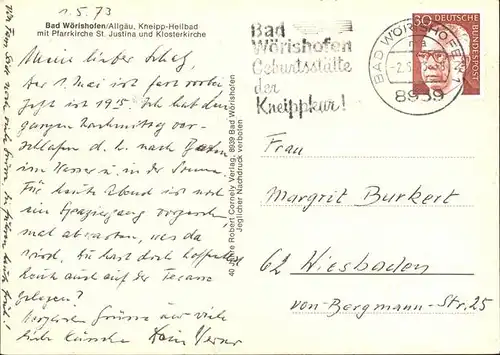 1.5.73
Bad Wörishofen/Allgäu, Kneipp-Heilbad
mit Pfarrkirche St. Justina und Klosterkirche
Meine lieber
Der 1. Mai ist fast vorbei
Jetzt ist 19 Ich hab den
ganzen Nachmittag ver-
schlafen d. h. nach Baden
im Wasser u. in der Sonne.
Für heute Abend ist noch
ein Spaziergang vorgesehen,
mal abwarten, was da
wird. Du hast doch hoffentlich
auch auf der Terrasse
gelegen?
Herzliche Grüsse und viele
liebe Dein Werner
40 Jahre Robert Cornely Verlag, 8939 Bad Wörishofen
Jeglicher Nachdruck verboten
Bad
Wörishofen
Geburtsstätte
der
Kneippkur!
BAD WÖRISHOFEN
8939
30
DEUTSCHE
BUNDESPOST
Frau
Margrit Burkert
62 Wiesbaden
von-Bergmann-Str. 25